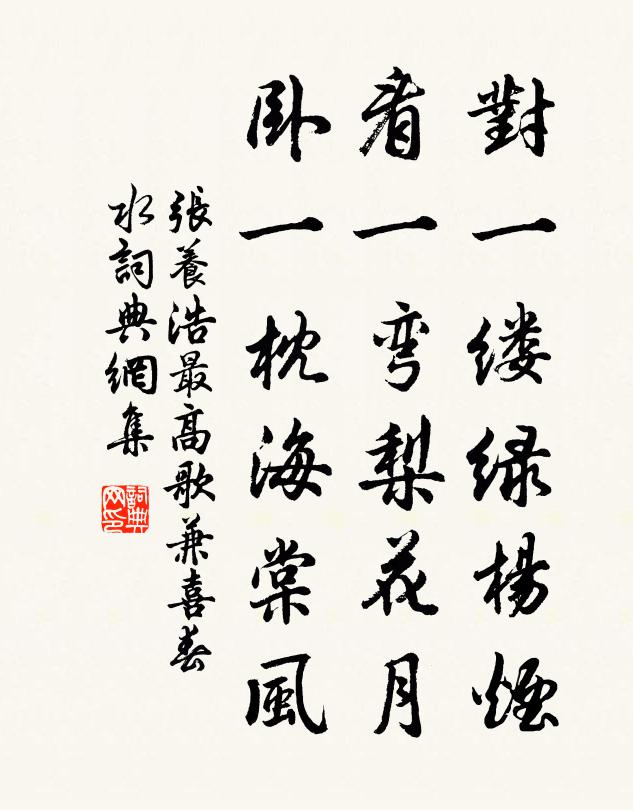 對一缕緑楊煙
看一彎梨花月
卧一枕海棠風
張養浩最高歌兼喜春
水詞典網集
詞典网印